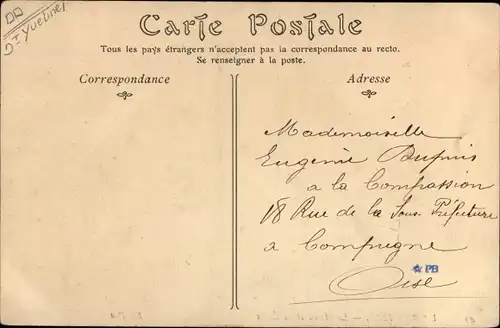 Carte Postale
Tous les pays étrangers n'acceptent pas la correspondance au recto.
Se renseigner à la poste.
Correspondance
Adresse
Mademoiselle
Eugénie Dupuis
a la Compassion
18 Rue de la Sous Préfecture
a Compiègne
Oise
PB